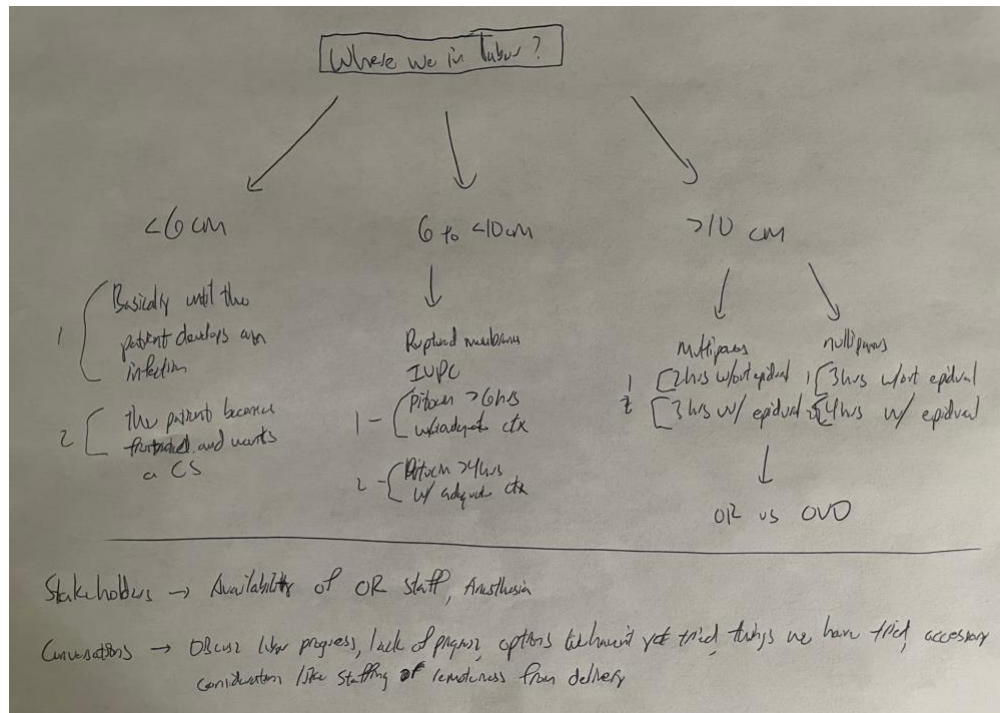 Where we in labor?
<6 cm
6 to <10 cm
>10 cm
1
Basically until the
patient develops an
infection
2
the patient becomes
frustrated and wants
a CS
Ruptured membrane
IUPC
1 - Pitocin >6hrs
w/inadequate ctx
2 - Pitocin >4hrs
w/ adequate ctx
Multiparous
1 2hrs w/out epidural
2 3hrs w/ epidural
nulliparous
1 3hrs w/out epidural
2 4hrs w/ epidural
OR vs OVD
Stakeholders → Availability of OR staff, Anesthesia
Conversations → Discuss labor progress, lack of progress, options we haven't yet tried, things we have tried, accessory
consideration like staffing or remoteness from delivery